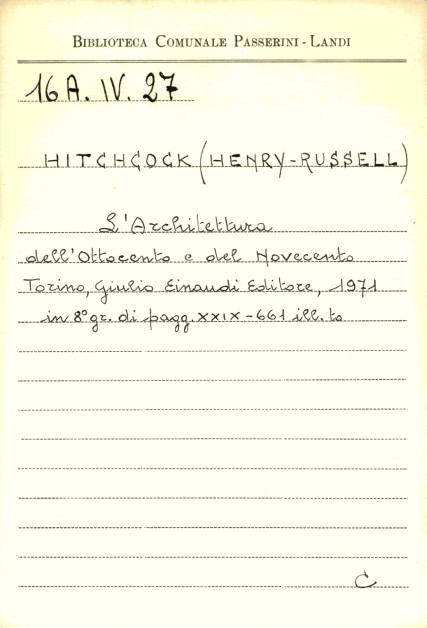 BIBLIOTECA COMUNALE PASSERINI - LANDI
16 A. IV. 27
HITCHCOCK (HENRY-RUSSELL)
L'Architettura
dell'Ottocento e del Novecento
Torino, Giulio Einaudi Editore, 1971
in 8° gr. di pagg. XXIX - 661 ill. to
C